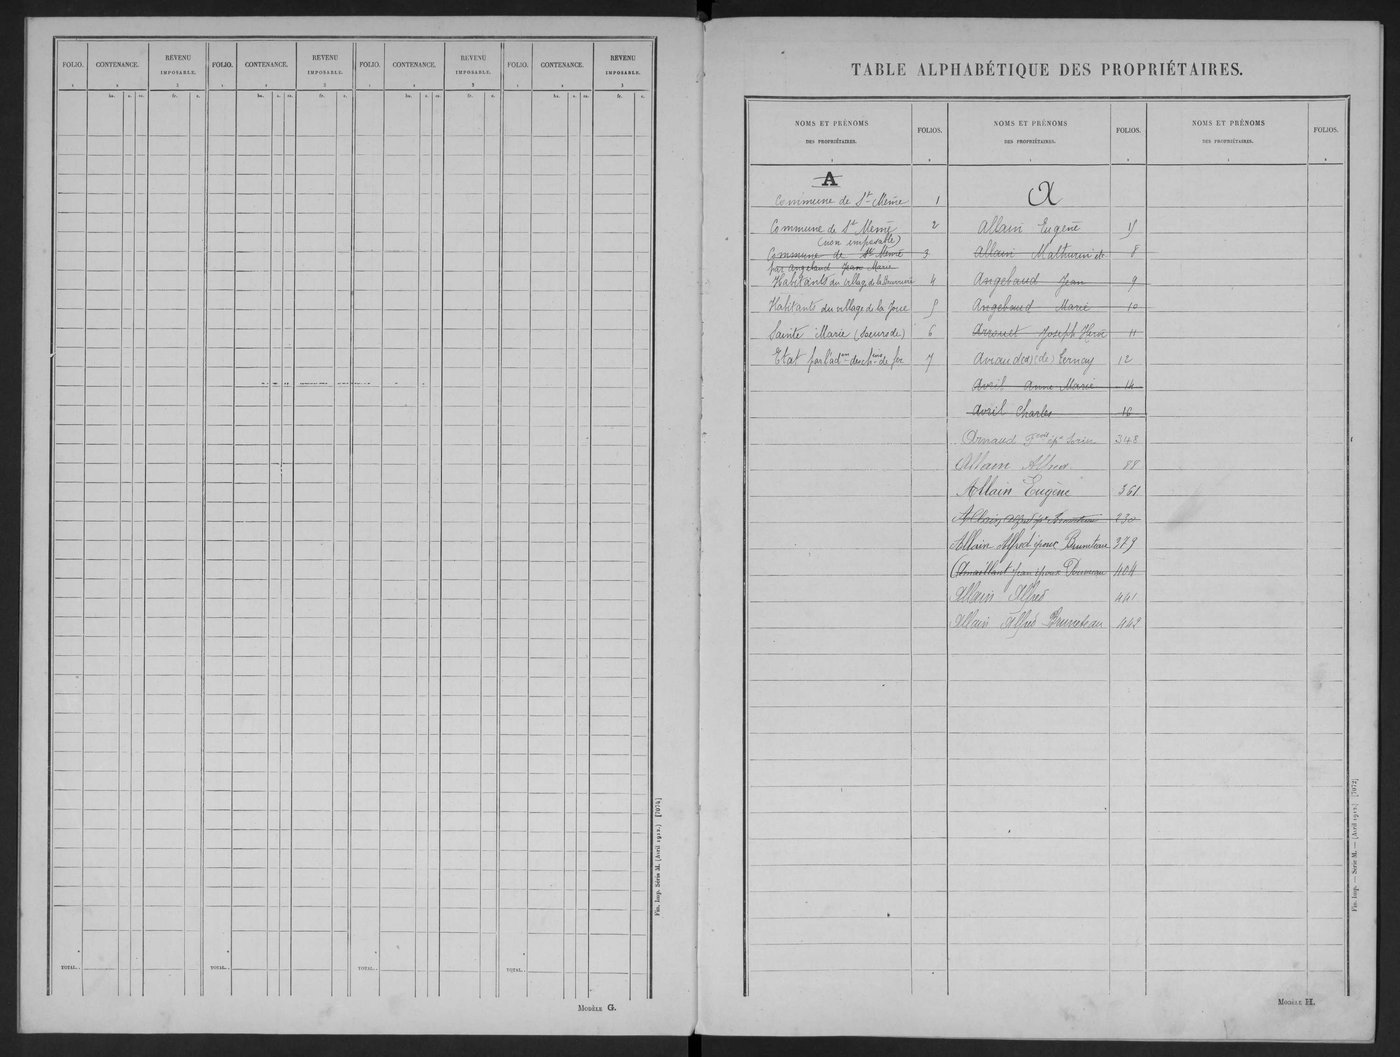 FOLIO. CONTENANCE. REVENU IMPOSABLE. FOLIO. CONTENANCE. REVENU IMPOSABLE. FOLIO. CONTENANCE. REVENU IMPOSABLE. FOLIO. CONTENANCE. REVENU IMPOSABLE.
1 2 3 1 2 3 1 2 3 1 2 3
ha. a. ca. fr. c. ha. a. ca. fr. c. ha. a. ca. fr. c. ha. a. ca. fr. c.
TOTAL. . TOTAL. . TOTAL. . TOTAL. .
Fin. Imp. Série M. (Avril 1912.) [7074]
MODÈLE G.
TABLE ALPHABÉTIQUE DES PROPRIÉTAIRES.
NOMS ET PRÉNOMS DES PROPRIÉTAIRES. FOLIOS. NOMS ET PRÉNOMS DES PROPRIÉTAIRES. FOLIOS. NOMS ET PRÉNOMS DES PROPRIÉTAIRES. FOLIOS.
A
Commune de St Même 1
Commune de St Même 2
(non imposable)
Commune de St Même 3
par Angebaud Jean Marie
Habitants du village de la 4
Habitants du village de la 5
Sainte Marie (Soeurs de) 6
Etat par l'adon des ch. de fer 7
A
Allain Eugène 15
Allain Mathurin 8
Angebaud Jean 9
Angebaud Marie 10
Arrouet Joseph 11
Aviau (de) Ternay 12
Avril Anne Marie 14
Avril Charles 16
Arnaud 348
Allain Alfred 88
Allain Eugène 361
Allain Alfred 230
Allain Alfred époux Bruneteau 379
Jean époux 404
Allain Alfred 441
Allain Alfred Bruneteau 442
Fin. Imp. — Série M. — (Avril 1912.) [7072]
MODÈLE H.